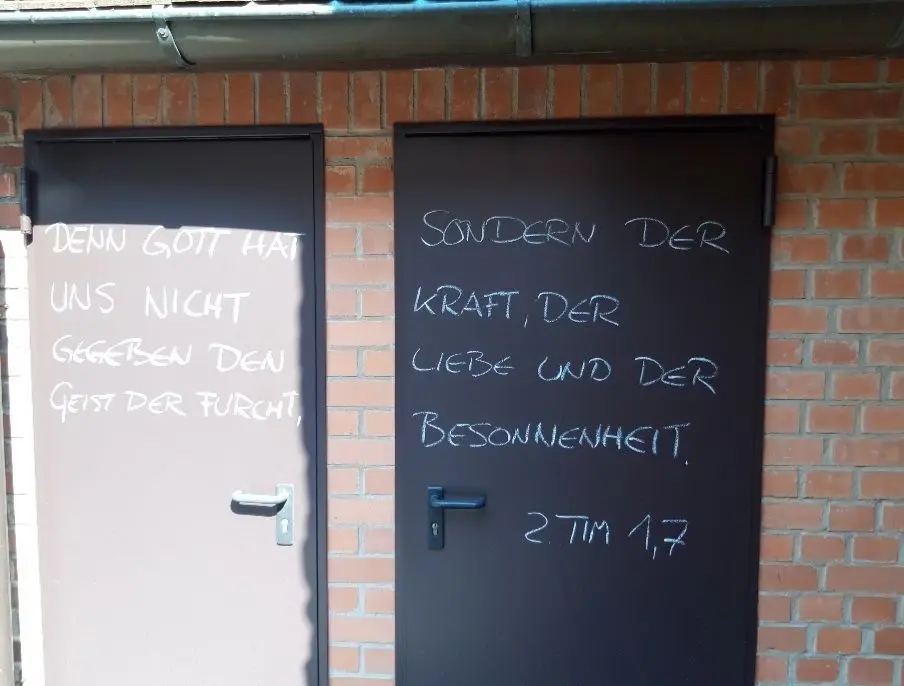 DENN GOTT HAT
UNS NICHT
GEGEBEN DEN
GEIST DER FURCHT,
SONDERN DER
KRAFT, DER
LIEBE UND DER
BESONNENHEIT.
2. TIM 1,7